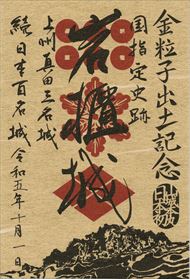 金粒子出土記念
国指定史跡
岩櫃城
上州真田三名城
続日本百名城 令和五年十月一日